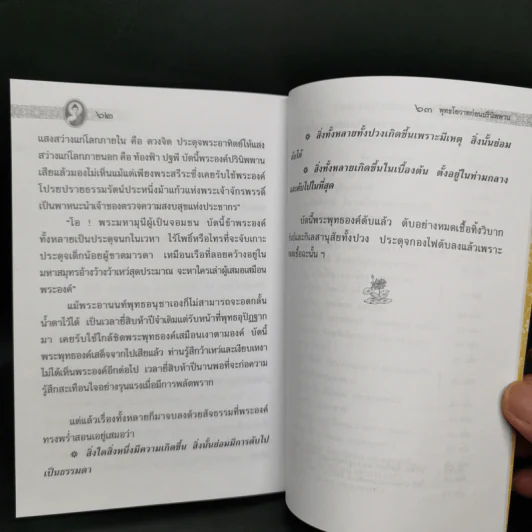 ๖๒
แสงสว่างแก่โลกภายใน คือ ดวงจิต ประดุจพระอาทิตย์ให้แสง
สว่างแก่โลกภายนอก คือ ท้องฟ้า ปฐพี บัดนี้พระองค์ปรินิพพาน
เสียแล้วมองไม่เห็นแม้แต่เพียงพระสรีระซึ่งเคยรับใช้พระองค์
โปรยปรายธรรมรัตน์ประหนึ่งม้าแก้วแห่งพระเจ้าจักรพรรดิ์
เป็นพาหนะนำเจ้าของตรวจความสงบสุขแห่งประชากร"
"โอ ! พระมหามุนีผู้เป็นจอมชน บัดนี้ข้าพระองค์
ทั้งหลายเป็นประดุจนกในเวหา ไร้โพธิ์หรือไทรที่จะจับเกาะ
ประดุจเด็กน้อยผู้ขาดมารดา เหมือนเรือที่ลอยคว้างอยู่ใน
มหาสมุทรอ้างว้างว้าเหว่สุดประมาณ จะหาใครเล่าผู้เสมอเสมือน
พระองค์"
แม้พระอานนท์พุทธอนุชาเองก็ไม่สามารถจะอดกลั้น
น้ำตาไว้ได้ เป็นเวลายี่สิบห้าปีจำเดิมแต่รับหน้าที่พุทธอุปัฏฐาก
มา เคยรับใช้ใกล้ชิดพระพุทธองค์เสมือนเงาตามองค์ บัดนี้
พระพุทธองค์เสด็จจากไปเสียแล้ว ท่านรู้สึกว้าเหว่และเงียบเหงา
ไม่ได้เห็นพระองค์อีกต่อไป เวลายี่สิบห้าปีนานพอที่จะก่อความ
รู้สึกสะเทือนใจอย่างรุนแรงเมื่อมีการพลัดพราก
แต่แล้วเรื่องทั้งหลายก็มาจบลงด้วยสัจธรรมที่พระองค์
ทรงพร่ำสอนอยู่เสมอว่า
สิ่งใดสิ่งหนึ่งมีความเกิดขึ้น สิ่งนั้นย่อมมีการดับไป
เป็นธรรมดา
๖๓ พุทธโอวาทก่อนปรินิพพาน
สิ่งทั้งหลายทั้งปวงเกิดขึ้นเพราะมีเหตุ สิ่งนั้นย่อม
สิ่งทั้งหลายเกิดขึ้นในเบื้องต้น ตั้งอยู่ในท่ามกลาง
และดับไปในที่สุด
บัดนี้พระพุทธองค์ดับแล้ว ดับอย่างหมดเชื้อทิ้งวิบาก
และกิเลสานุสัยทั้งปวง ประดุจกองไฟดับลงแล้วเพราะ
เชื้อฉะนั้น ฯ